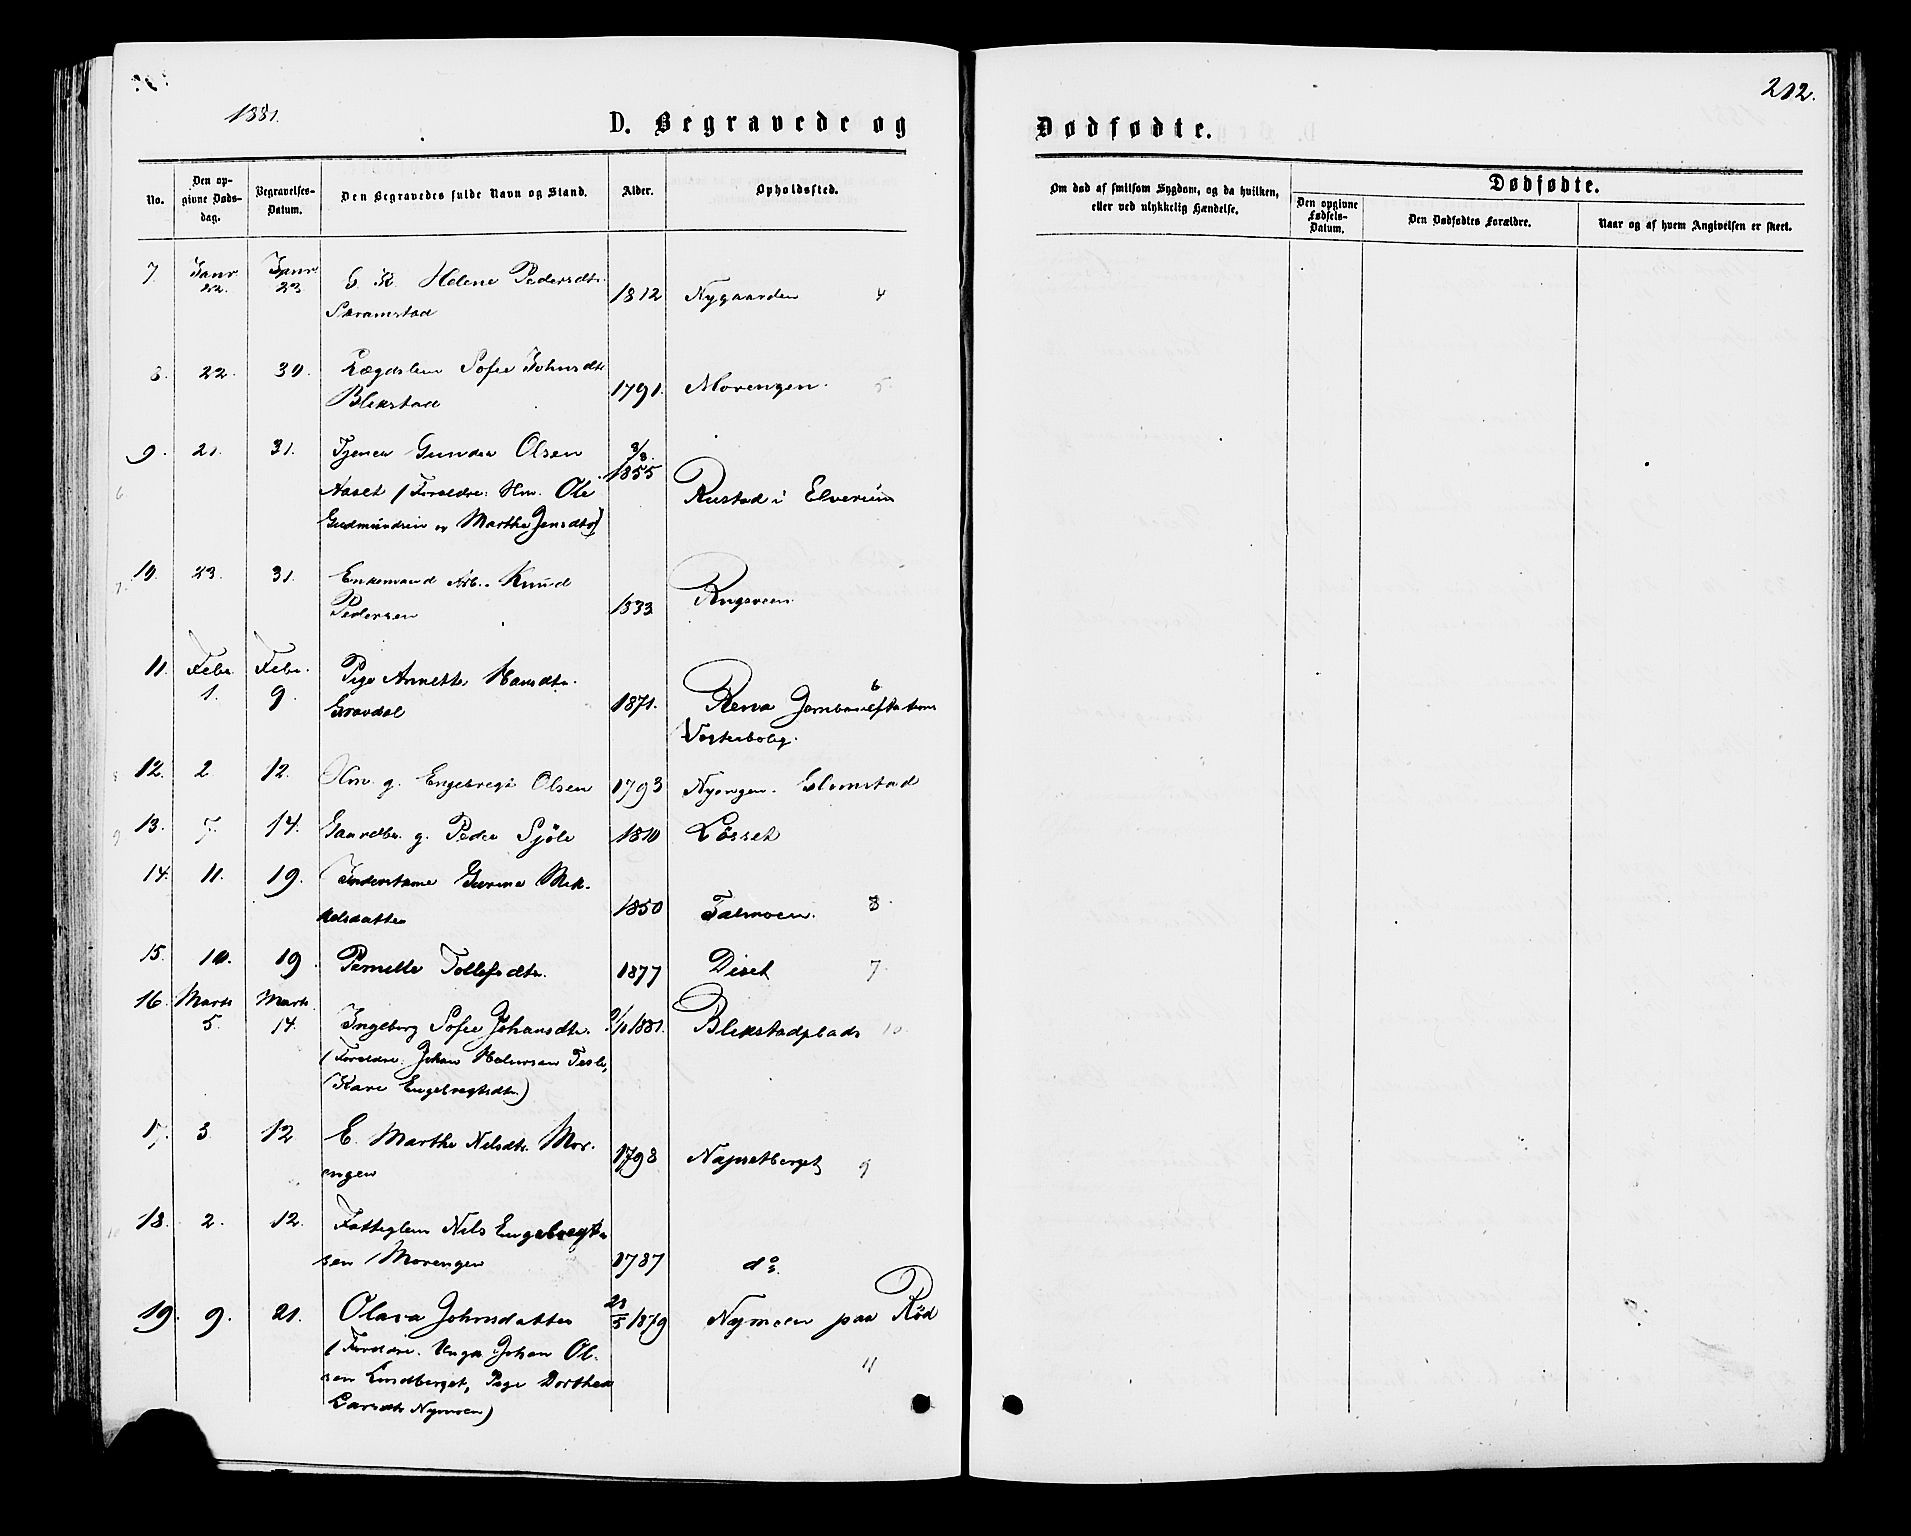 1881.
D. Begravede og
Dødfødte.
212.
No.
Den opgivne Døds-dag.
Begravelses-Datum.
Den Begravedes fulde Navn og Stand.
Alder.
Opholdssted.
Om død af smitsom Sygdom, og da hvilken,
eller ved ulykkelig Hændelse.
Dødfødte.
Den opgivne Fødsels-Datum.
Den Dødfødtes Forældre.
Naar og af hvem Angivelsen er skeet.
7. Janr 22. Janr 23 Helene Pedersdtr. 1812 Nygaarden 4
8. 22. 30. Lægdslem Sofie Johnsdtr
Blikstad 1791. Morengen. 5.
9. 21. 31. Tjener Gunder Olsen 3/8. 1855
Aaset (Forældre: Hm. Ole Rustad i Elverum
6 Gudmundsen og Marthe Jensdtr)
10. 23. 31. Enkemand Arb. Knud
7. Pedersen 1833
11. Febr. 1. Febr. 9. Pige Annette Hansdtr.
Gravdal 1871. Rena Jernbanestations 6
Vogterbolig.
8 12. 2 12. Hm. g. Engebregt Olsen 1793 Nyengen. Glomstad
9 13. 7. 14. Gaardbr. g. Peder Sjøli 1810 Løsset
14. 11. 19. Inderstame Gurine Mik-
kelsdatter 1850 8.
15. 10. 19. Pernille Tollefsdtr. 1877 Diset 7.
16. Marts 5. Marts 14. Ingeborg Sofie Johansdtr. 1881. Blikstadplads 10.
(Forældre: Johan Halvorsen
Kari Engebregtsdtr.)
17. 3. 12 E. Marthe Nilsdtr. Mor-
engen 1798 Næpsetberget 9
18. 2. 12. Fattiglem Nils Engebregt-
10 sen Morengen 1787 do.
19. 9. 21. Olava Johnsdatter 5 1879 Nymoen paa Rød
(Forældre: Ungk. Johan Ol- 11
sen Lundberget, Pige Dorthea
Larsdtr Nymoen)